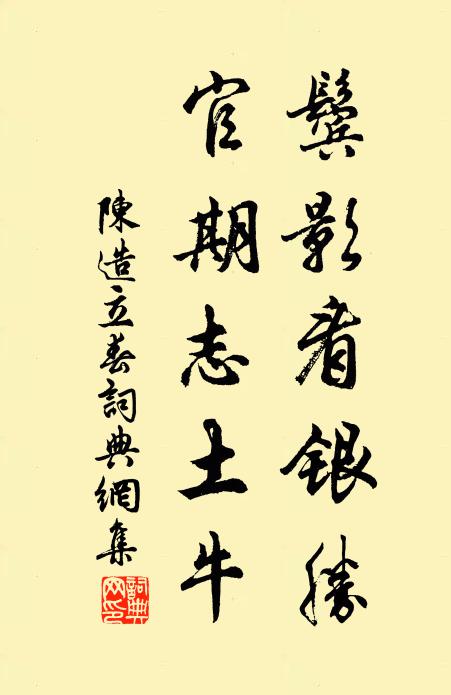 鬓影看銀勝
官期志土牛
陳造立春詞典網集
詞典網印